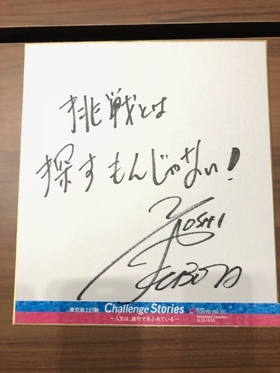 挑戦とは
探すもんじゃない!
YOSHI
KUBOTA
Challenge Stories
～人生は、挑戦であふれている～